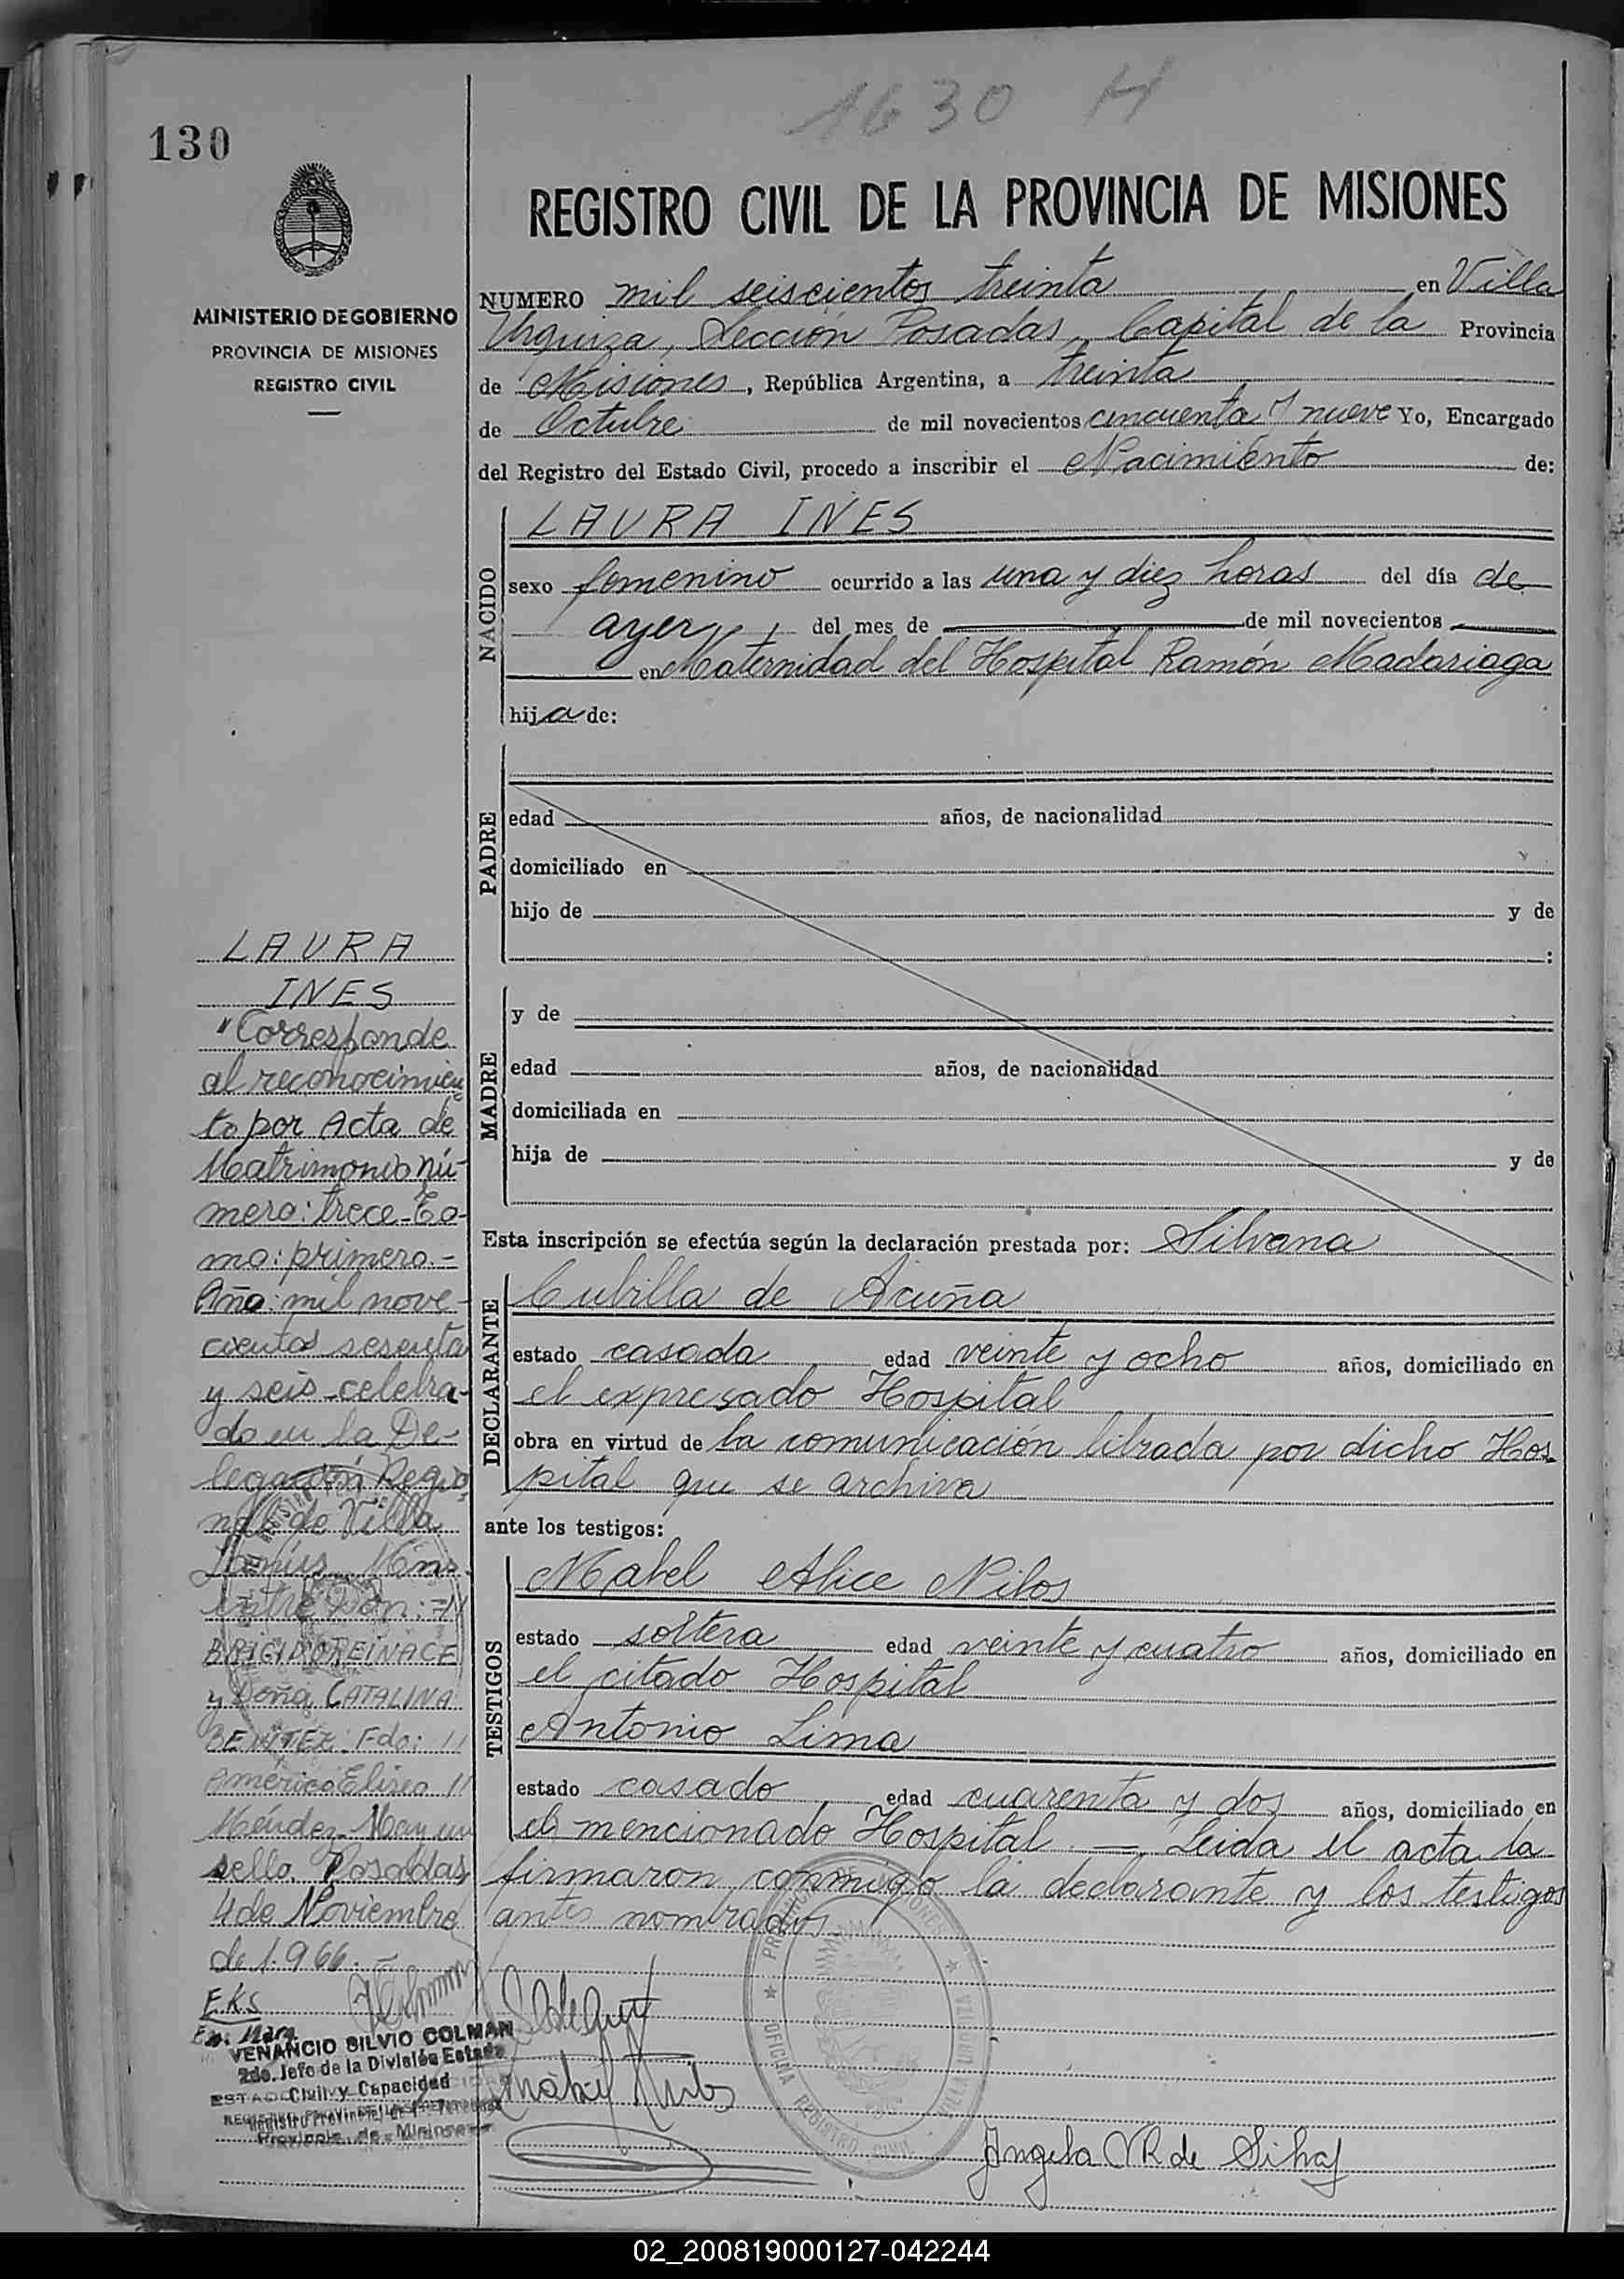 1630 H
130
REGISTRO CIVIL DE LA PROVINCIA DE MISIONES
MINISTERIO DE GOBIERNO
PROVINCIA DE MISIONES
REGISTRO CIVIL
NUMERO mil seiscientos treinta en Villa
Urquiza, Sección Posadas, Capital de la Provincia
de Misiones, República Argentina, a treinta
de Octubre de mil novecientos cincuenta y nueve Yo, Encargado
del Registro del Estado Civil, procedo a inscribir el Nacimiento de:
NACIDO
LAURA INES
sexo femenino ocurrido a las una y diez horas del día de
ayer del mes de de mil novecientos
en Maternidad del Hospital Ramón Madariaga
hija de:
PADRE
edad años, de nacionalidad
domiciliado en
hijo de y de
:
MADRE
y de
edad años, de nacionalidad
domiciliada en
hija de y de
Esta inscripción se efectúa según la declaración prestada por: Silvana
DECLARANTE
Cubilla de Acuña
estado casada edad veinte y ocho años, domiciliado en
el expresado Hospital
obra en virtud de la comunicación librada por dicho Hos-
pital que se archiva
ante los testigos:
TESTIGOS
Mabel Alice Nilos
estado soltera edad veinte y cuatro años, domiciliado en
el citado Hospital
Antonio Lima
estado casado edad cuarenta y dos años, domiciliado en
el mencionado Hospital. — Leida el acta la
firmaron conmigo la declarante y los testigos
antes nombrados
LAURA
INES
"Corresponde
al reconocimien
to por Acta de
Matrimonio nú-
mero: trece-To-
mo: primero.-
Año: mil nove-
cientos sesenta
y seis-celebra-
do en la De-
legación Regio
nal de Villa
Lanús Mns.
entre Don:
BRIGIDO REINACE
y Doña CATALINA
BENITEZ. Fdo: //
Américo Eliseo //
Méndez-Hay un
sello. Posadas
4 de Noviembre
de 1.966.
EKS
En: Marg.
VENANCIO SILVIO COLMAN
2do. Jefe de la División Estado
Civil y Capacidad
Provincia de Misiones
PROVINCIA DE MISIONES
OFICINA REGISTRO CIVIL
VILLA URQUIZA
Angela R de Silva
02_200819000127-042244